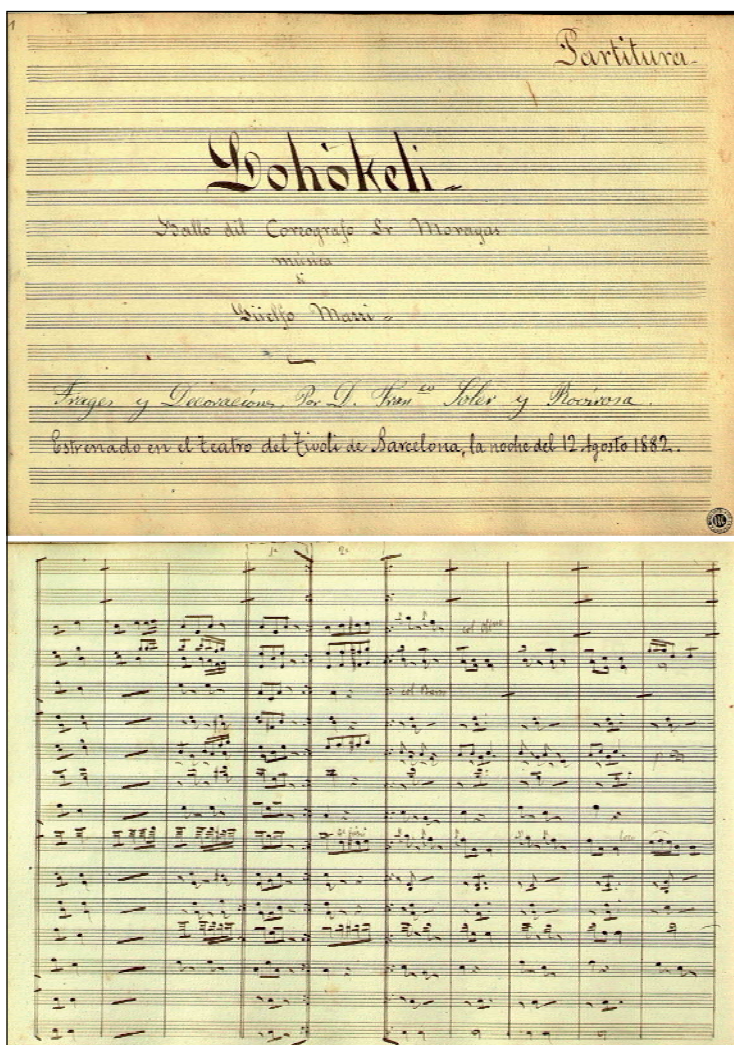 1
Partitura
Lohökeli
Ballo dil Coreografo Sr Moragas
música
di
Güelfo Mazzi
Trages y Decoraciones, Por D. Fran.co Soler y Rovirosa.
Estrenado en el Teatro del Tivoli de Barcelona, la noche del 12 Agosto 1882.
1a 2a